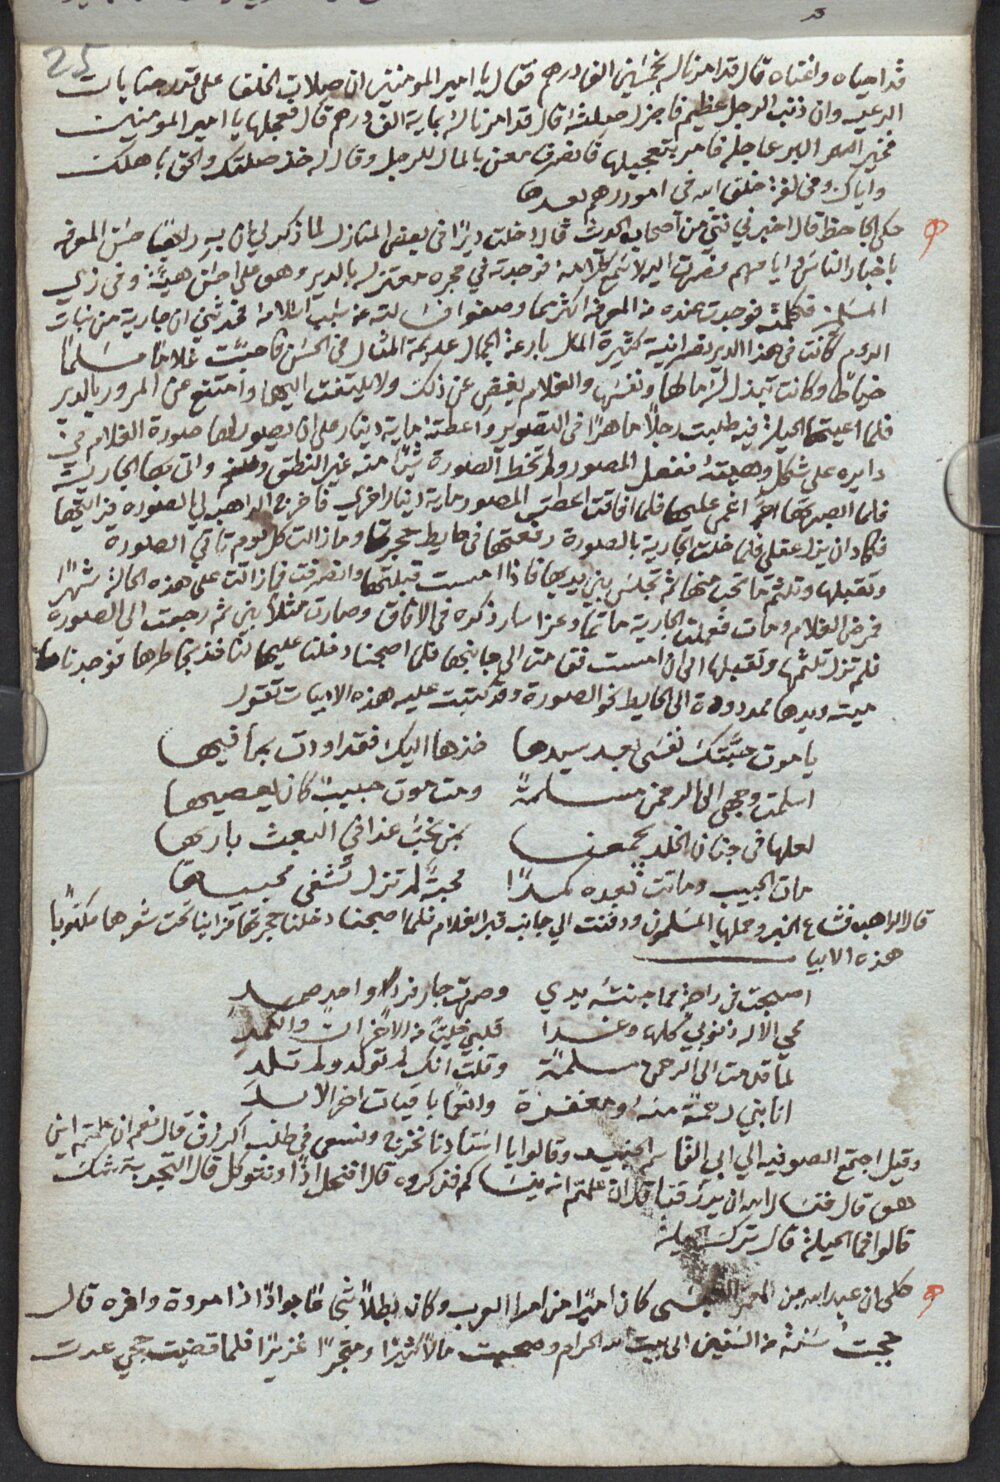 25
قد احياه واغناه قال قد امرنا له بخمسين الف درهم فقال يا امير المومنين ان صلات الخلفا على قدر جنايات
الرعيه وان ذنب الرجل عظيم فاجزل صلته قال قد امرنا له بماية الف درهم قال فعجلها يا امير المومنين
فخير البر عاجله فامر بتعجيلها فانصرف معن بالمال للرجل وقال له خذ صلتك والحق باهلك
واياك ومخالفة خلفا الله في امورهم بعدها
حكى الجاحظ قال اخبرني فتى من اصحاب الحديث قال دخلت ديرًا في بعض المنازل لما ذكر لي ان به راهبًا حسن المعرفه
باخبار الناس وايامهم فصرت اليه لاسمع كلامه فوجدته في حجره معتزله بالدير وهو على احسن هيئة وفي زي
المسلمين فكلمته فوجدت عنده من المعرفه اكثر مما وصفوا فسالته عن سبب اسلامه فحدثني ان جارية من بنات
الروم كانت في هذا الدير نصرانية كثيرة المال بارعة الجمال عديمة المثال في الحسن فاحبت غلامًا مسلمًا
خياطًا وكانت تبذل له مالها ونفسها والغلام يغض عن ذلك ولا يلتفت اليها وامتنع من المرور بالدير
فلما اعيتها الحيلة فيه طلبت رجلًا ماهرًا في التصوير واعطته ماية دينار على ان يصور لها صورة الغلام في
دايره على شكله وهيئته ففعل المصور ولم تخط الصورة شيًا منه غير النطق واتى بها الجارية
فلما ابصرتها اغمي عليها فلما افاقت اعطت المصور ماية دينار اخرى فاخرج الراهب لي الصوره فرايتها
فكاد ان يزل عقلي فلما خلت الجارية بالصورة رفعتها في حايط حجرتها وما زالت كل يوم تاتي الصورة
وتقبلها وتلثم ما تحب منها ثم تجلس بين يديها فاذا امست قبلتها وانصرفت فما زالت على هذه الحالة شهرًا
فمرض الغلام ومات فعملت الجارية ماتمًا وعزا سار ذكره في الافاق وصارت مثلًا بين ثم رجعت الى الصورة
فلم تزل تلثمها وتقبلها الى ان امست فماتت الى جانبها فلما اصبحنا دخلنا عليها لناخذ بخاطرها فوجدناها
ميته ويدها ممدودة الى الحايط نحو الصورة وقد كتبت عليه هذه الابيات تقول
يا موت حسبك نفسي بعد سيدها خذها اليك فقد اودت بما فيها
اسلمت وجهي الى الرحمن مسلمة ومت موت حبيب كان يعصيها
لعلها في جنان الخلد يجمعها بمن تحب غدا في البعث باريها
مات الحبيب وماتت بعده كمدًا محبة لم تزل تشقى محبيها
قال الراهب فشاع الخبر وحملها المسلمون ودفنت الى جانب قبر الغلام فلما اصبحنا دخلنا حجرتها فراينا تحت شعرها مكتوبًا
هذه الابيا ت
اصبحت في راحة مما جنته يدي وصرت جار فردًا واحد صمد
محى الاله ذنوبي كلها وغدا قلبي خليًا من الاحزان والكمد
لما قدمت الى الرحمن مسلمة وقلت انك لم تولد ولم تلد
اثابني رحمة منه ومغفرة وانعمًا باقيات اخر الابد
وقيل اجتمع الصوفيه الى ابي القاسم الجنيد وقالوا يا استادنا نخرج ونسعى في طلب الرزق قال نعم ان علمتم اين
هو قال فنسال الله ان يرزقنا قال ان علمتم انه نسيكم فذكروه قالوا فنحل اذًا ونتوكل قال التجربة شك
قالوا فما الحيلة قال ترك الحيلة
حكى ان عبد الله بن القيسي كان اميرًا من امرا العرب وكان بطلًا شجاعًا جوادًا ذا مروة وافره قال
حججت سنة من السنين الى بيت الله الحرام وصحبت مالًا كثيرًا ومتجرًا غزيرًا فلما قضيت حجي عدت